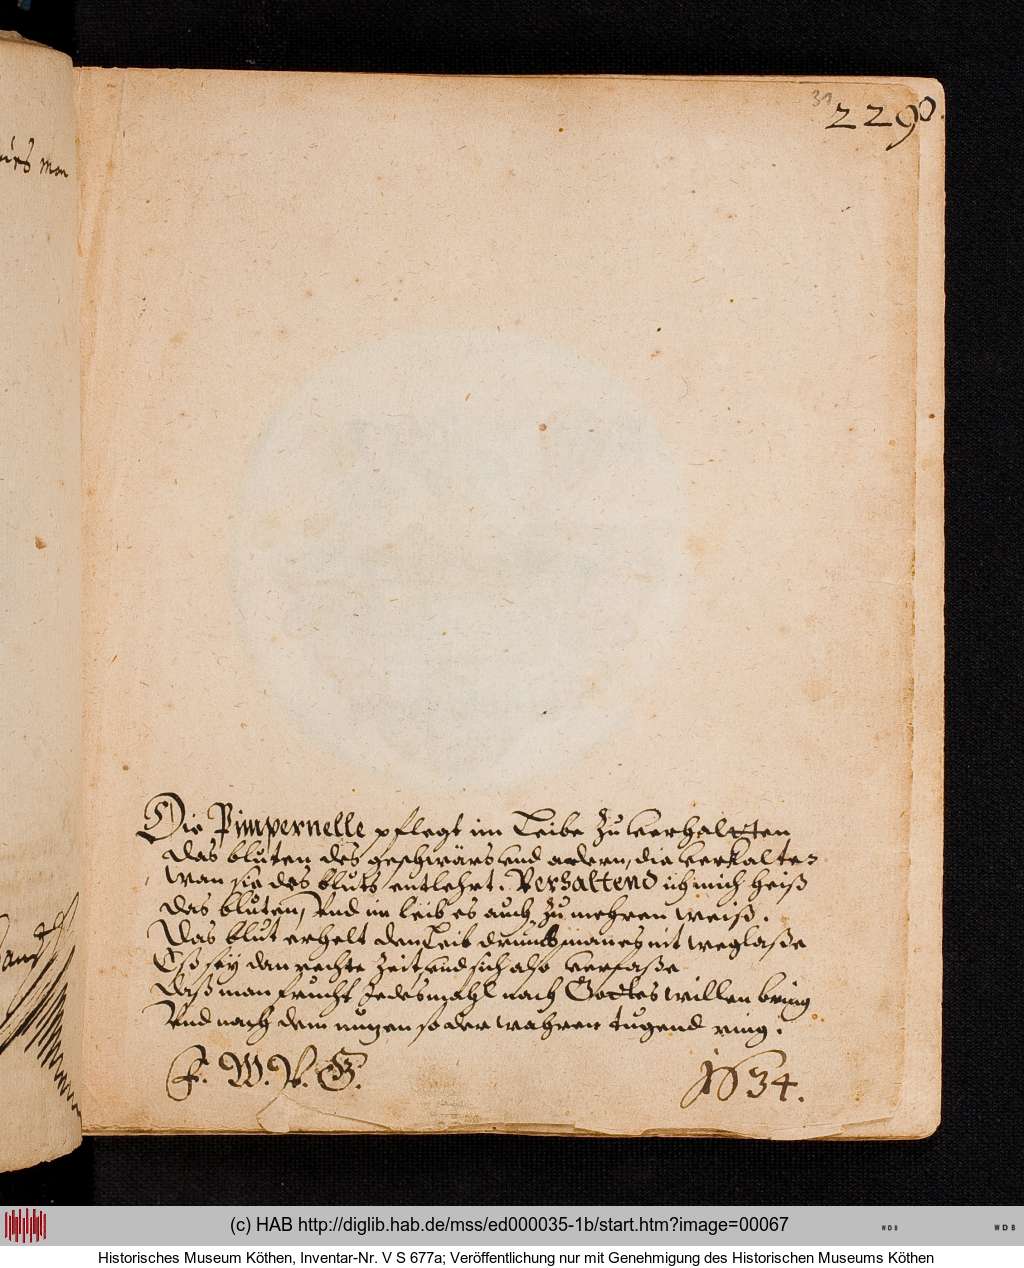 31
229.
Die Pimpernelle pflegt im Leibe Zu verhaltten
Das bluten des geschwärs und adern, die verkalten
Wan sie des bluts entlehrt. Verhaltend ich mich heiß
Das bluten, Und im leib es auch Zu mehren weiß.
Das blut erhelt den Leib drumb man es nit weglaße
Eß sey dan rechte Zeit und sich also verfaße
Daß man frucht Jedesmahl nach Gottes willen bring
Und nach dem nuzen so der wahren tugend ring.
F. W. V. G.
1634.
(c) HAB http://diglib.hab.de/mss/ed000035-1b/start.htm?image=00067
WDB
WDB
Historisches Museum Köthen, Inventar-Nr. V S 677a; Veröffentlichung nur mit Genehmigung des Historischen Museums Köthen